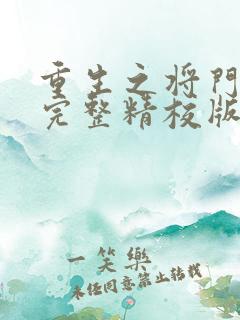 重生之将門
完整精校版
一笑樂
未经同意禁止转载